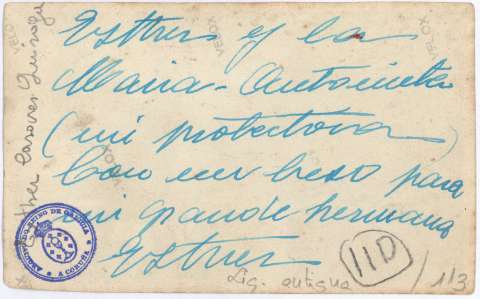 Esther y la
Maria-Antonieta
(mi protectora)
Con un beso para
mi grande hermana
Esther
Esther Casares Quiroga
VELOX
VELOX
VELOX
VELOX
ARQUIVO DO REINO DE GALICIA
A CORUÑA
Sig. antigua
110
/113